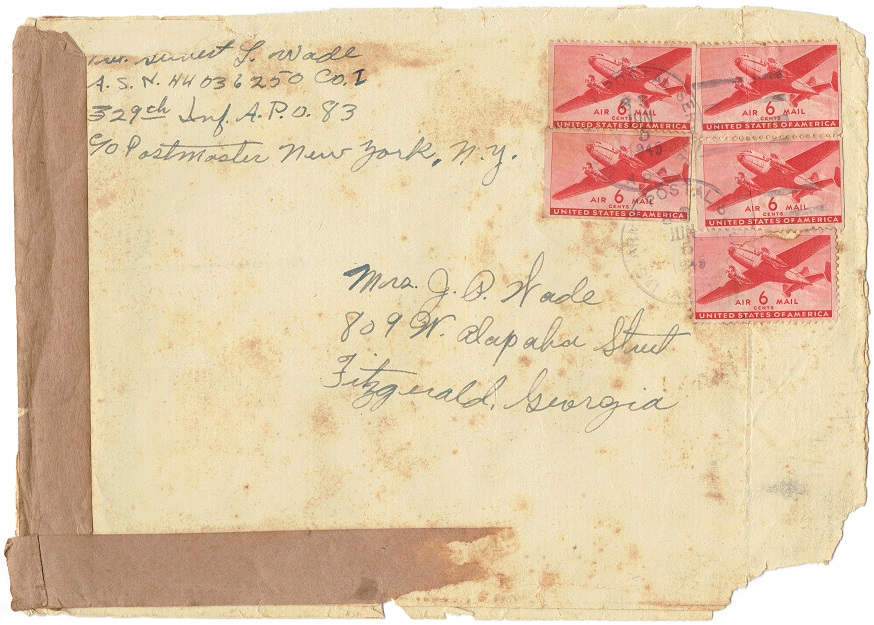 L. Wade
A. S. N. 44036250 Co. I
329th Inf. A.P.O. 83
c/o Postmaster New York, N.Y.
AIR 6 MAIL
CENTS
UNITED STATES OF AMERICA
AIR 6 MAIL
CENTS
UNITED STATES OF AMERICA
AIR 6 MAIL
CENTS
UNITED STATES OF AMERICA
AIR 6 MAIL
CENTS
UNITED STATES OF AMERICA
AIR 6 MAIL
CENTS
UNITED STATES OF AMERICA
POSTAL
JUN
POSTAL
JUN
Mrs. J. P. Wade
809 W. Alapaha Street
Fitzgerald, Georgia